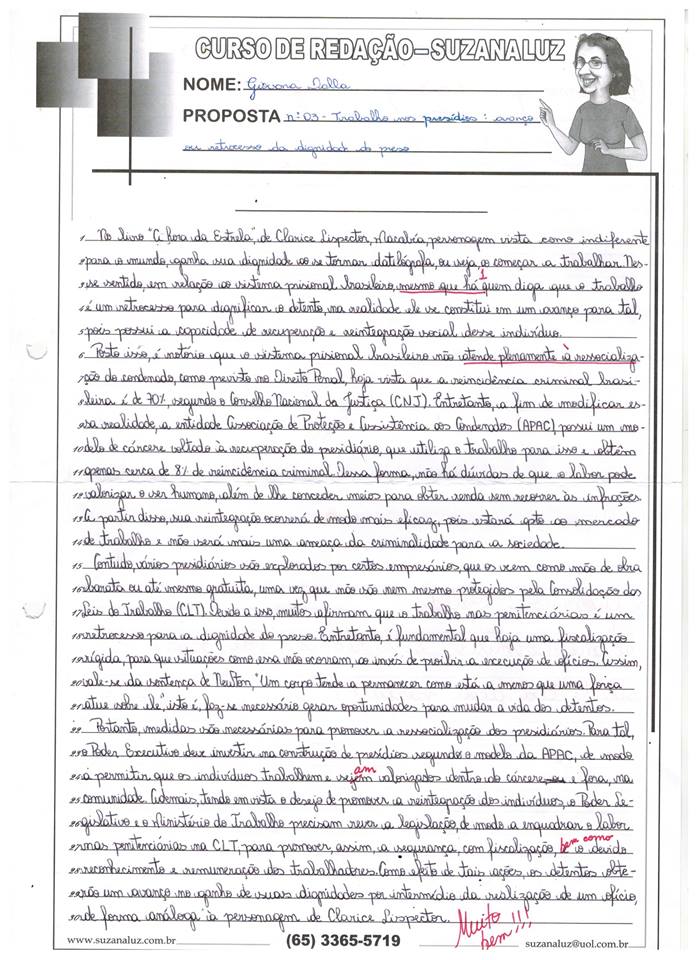 CURSO DE REDAÇÃO–SUZANA LUZ
NOME: Giovana Dalla
PROPOSTA nº 03 - Trabalho nos presídios: avanço
ou retrocesso da dignidade do preso
1 No livro "A hora da Estrela", de Clarice Lispector, Macabéa, personagem vista como indiferente
para o mundo, ganha sua dignidade ao se tornar datilógrafa, ou seja, ao começar a trabalhar. Des-
se sentido, em relação ao sistema prisional brasileiro, mesmo que há¹ quem diga que o trabalho
é um retrocesso para dignificar o detento, na realidade ele se constitui em um avanço para tal,
pois possui a capacidade de recuperação e reintegração social desse indivíduo.
6 Posto isso, é notório que o sistema prisional brasileiro não atende plenamente à ressocializa-
ção do condenado, como previsto no Direito Penal, haja vista que a reincidência criminal brasi-
leira é de 70%, segundo o Conselho Nacional da Justiça (CNJ). Entretanto, a fim de modificar es-
sa realidade, a entidade Associação de Proteção e Assistência aos Condenados (APAC) possui um mo-
delo de cárcere voltado à recuperação do presidiário, que utiliza o trabalho para isso e obtém
apenas cerca de 8% de reincidência criminal. Dessa forma, não há dúvidas de que o labor pode
valorizar o ser humano, além de lhe conceder meios para obter renda sem recorrer às infrações.
A partir disso, sua reintegração ocorrerá de modo mais eficaz, pois estará apto ao mercado
de trabalho e não será mais uma ameaça da criminalidade para a sociedade.
15 Contudo, vários presidiários são explorados por certos empresários, que os veem como mão de obra
barata ou até mesmo gratuita, uma vez que não são nem mesmo protegidos pela Consolidação das
Leis do Trabalho (CLT). Devido a isso, muitos afirmam que o trabalho nas penitenciárias é um
retrocesso para a dignidade do preso. Entretanto, é fundamental que haja uma fiscalização
rígida, para que situações como essa não ocorram, ao invés de proibir a execução de ofícios. Assim,
vale-se da sentença de Newton, "Um corpo tende a permanecer como está a menos que uma força
atue sobre ele", isto é, faz-se necessário gerar oportunidades para mudar a vida dos detentos.
22 Portanto, medidas são necessárias para promover a ressocialização dos presidiários. Para tal,
o Poder Executivo deve investir na construção de presídios segundo o modelo da APAC, de modo
a permitir que os indivíduos trabalhem e sejam valorizados dentro do cárcere e fora, na
comunidade. Ademais, tendo em vista o desejo de promover a reintegração dos indivíduos, o Poder Le-
gislativo e o Ministério do Trabalho precisam rever a legislação, de modo a enquadrar o labor
nas penitenciárias na CLT, para promover, assim, a segurança, com fiscalização, bem como o devido
reconhecimento e remuneração dos trabalhadores. Como efeito de tais ações, os detentos obte-
rão um avanço no ganho de suas dignidades por intermédio da realização de um ofício,
de forma análoga à personagem de Clarice Lispector.
Muito bem!!!
www.suzanaluz.com.br
(65) 3365-5719
suzanaluz@uol.com.br